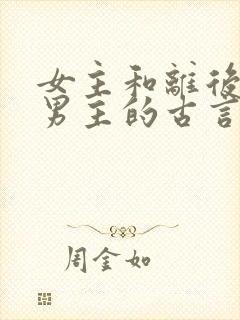 女主和離後
男主的古言
周金如